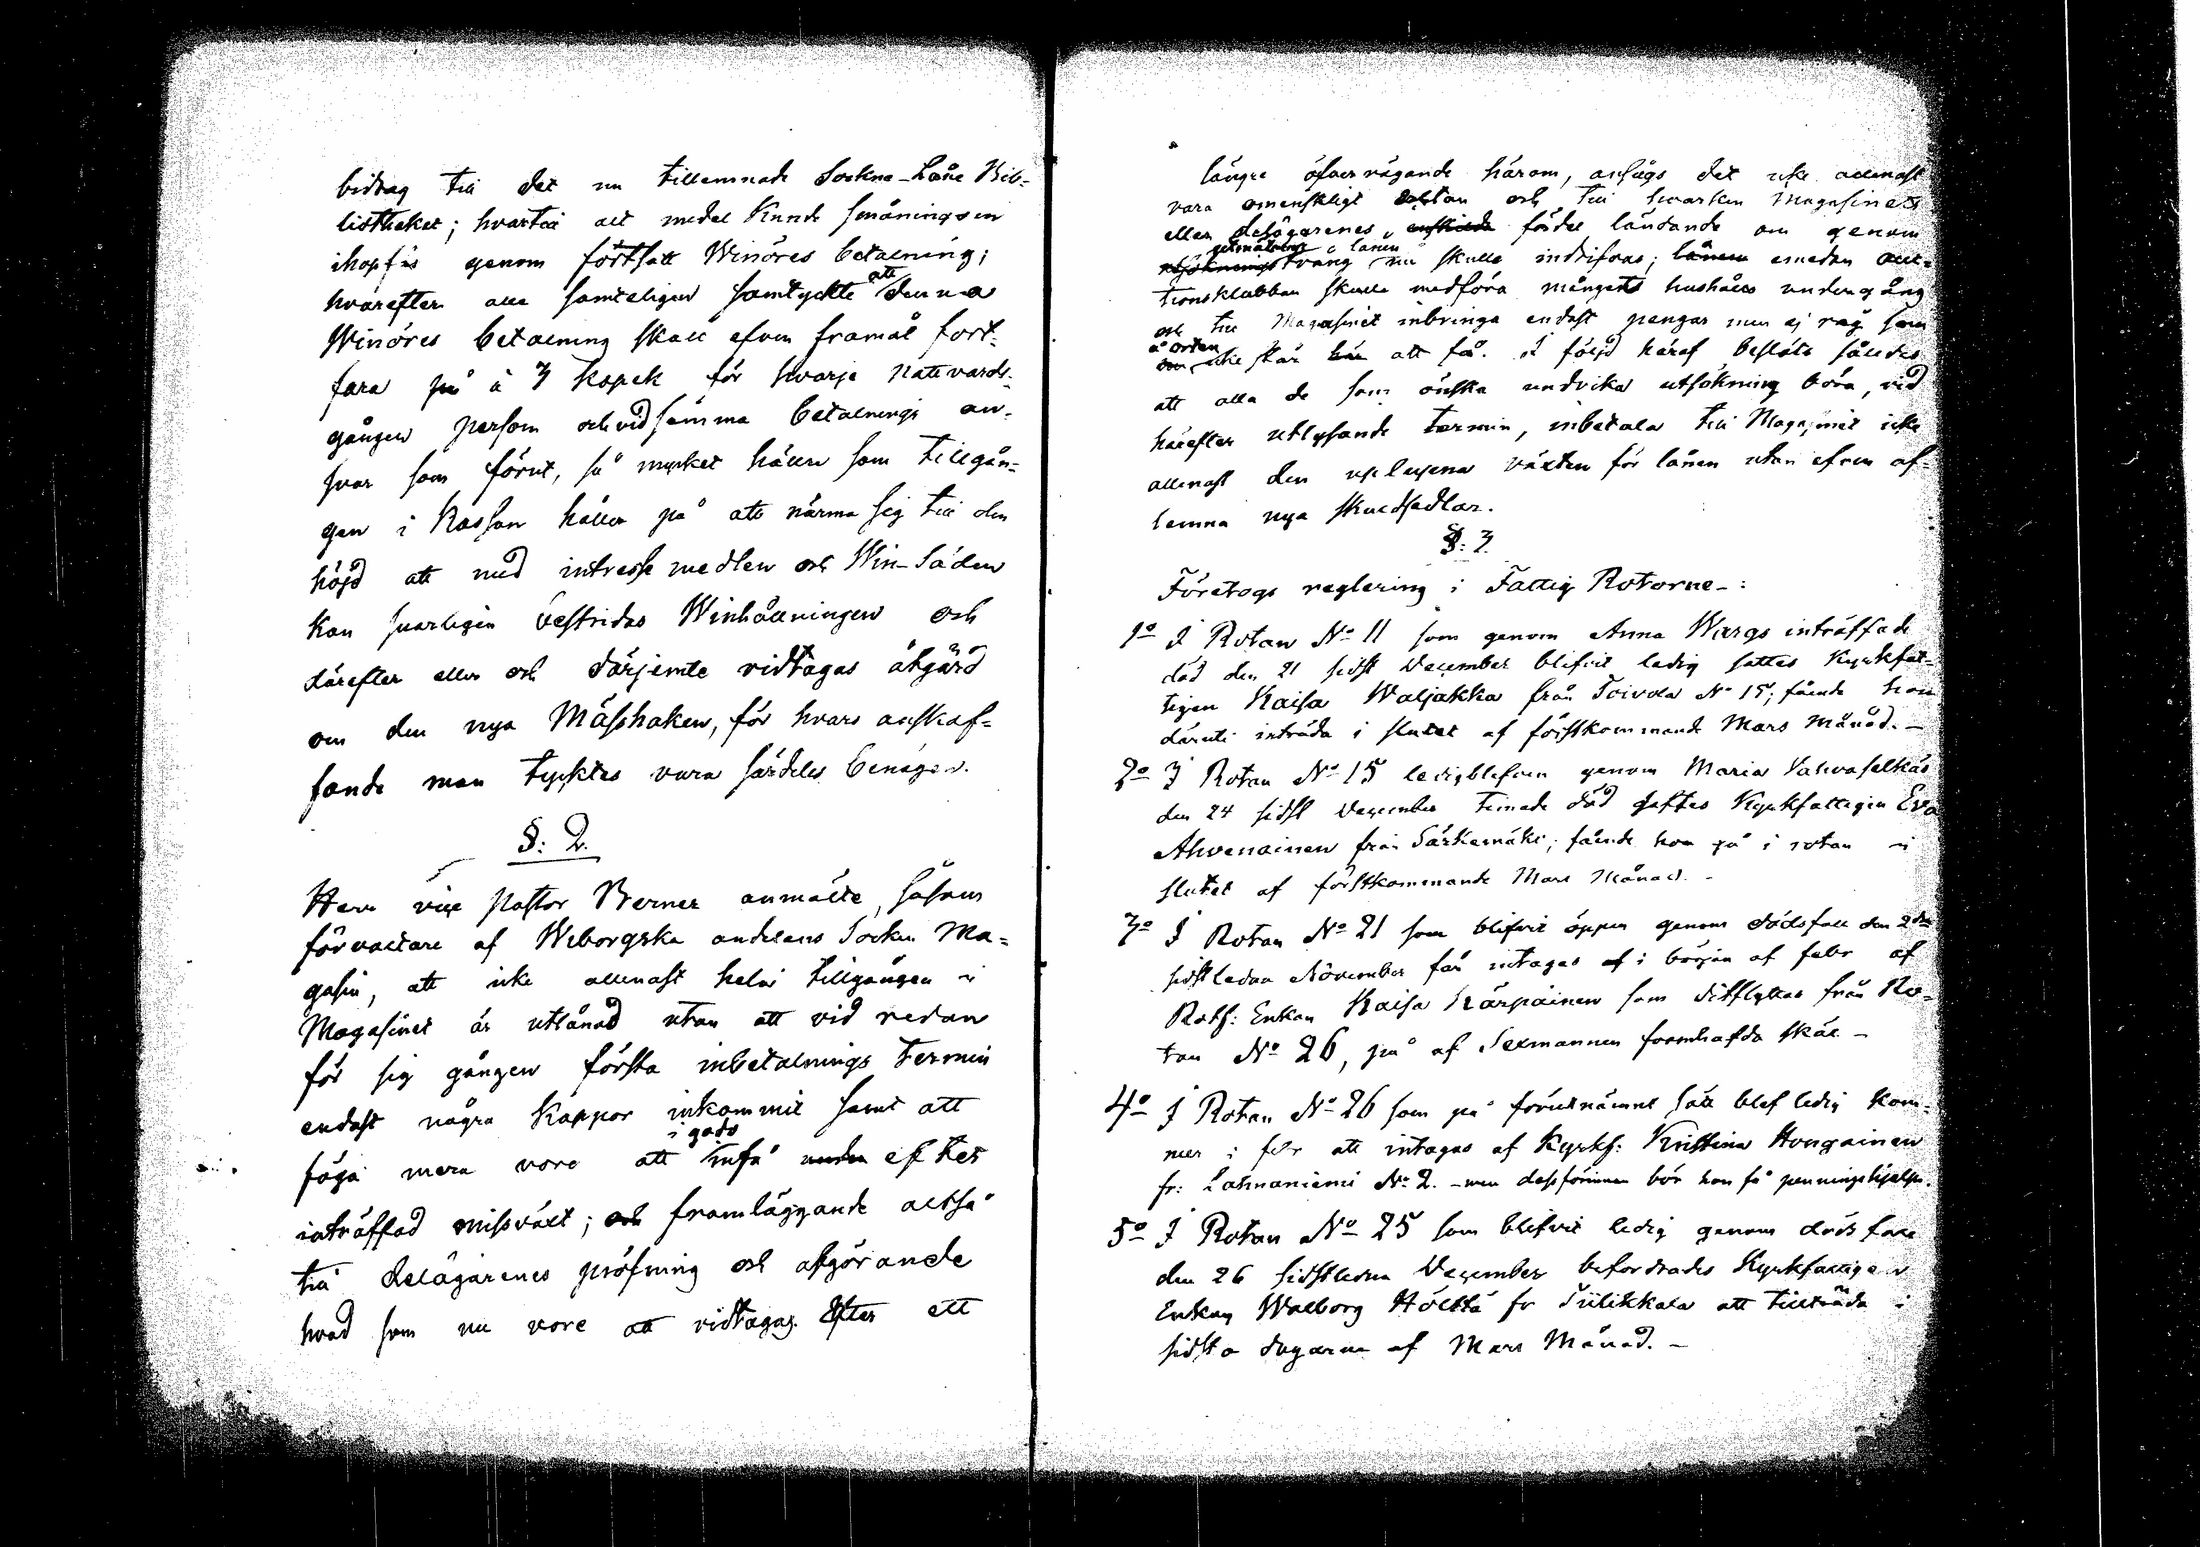 bidrag till det nu tillemnade Sockne-Låne Bib-
liotheket; hvartill alt medel kunde småningom
ihopfås genom fortsatt Winöres betalning;
hvarefter alla samteligen samtyckte att denna
Winöres betalning skall efven framåt fort-
fara på à 3 kopek för hvarje nattvards-
gången person och vid samma betalnings an-
svar som förut, så mycket häller som tillgån-
gen i Kassan håller på att närma sig till den
höjd att med intresse medlen och Win-Säden
kan svarligen bestridas Winhållningen och
därefter eller och därjemte vidtagas åtgärd
om den nya Mässhaken, för hvars anskaf-
fande man tycktes vara särdeles benägen.
§: 2.
Herr vice pastor Berner anmälte, såsom
förvaltare af Wiborgska andelens Socken Ma-
gasin, att icke allenast hela tillgången i
Magasinet är utlånad utan att vid redan
för sig gången första inbetalnings termin
endast några kappor inkommit samt att
i gods
föga mera vore att infå efter
inträffad missväxt; och framläggande altså
till delägarenes pröfning och afgörande
hvad som nu vore att vidtagas. Efter ett
längre öfvervägande härom, ansågs det icke allenast
vara omenskligt utan och till hvarken Magasinets
eller delägarenes enskilda fördel ländande om genom
lånen
utsökningstvång nu skulle indrifvas; lånen emedan auc-
tionsklubban skulle medföra mångens hushålls undergång
och till Magasinet inbringa endast pengar men ej råg som
å orten
icke står här att få. I följd häraf beslöts således
att alla de som önska undvika utsökning böra, vid
härefter utlysande termin, inbetala till Magasinet icke
allenast den uplupna växten för lånen utan efven af-
lemna nya skuldsedlar.
§: 3.
Företogs reglering i Fattig Rotorne-:
1o I Rotan No 11 som genom Anna Wargs inträffade
död den 21 sidst December blifvit ledig sattes Kyrkfat-
tigen Kaisa Waljakka från Toivola No 15; fående hon
däruti inträda i slutet af förstkommande Mars Månad. -
2o I Rotan No 15 ledigblefven genom Maria Vahvaselkäs
den 24 sidst December timade död sattes Kyrkfattigen Eva
Ahvenainen från Särkemäki; fående hon gå i rotan i
slutet af förstkommande Mars Månad. -
3o I Rotan No 21 som blifvit öppen genom dödsfall den 2dra
sidstledne November får intagas af i början af febr af
Rotf: Enkan Kaisa Kärpäinen som ditflyttas från Ro-
tan No 26, på af Sexmannen framhafda skäl -
4o I Rotan No 26 som på förutnämnt sätt blef ledig kom-
mer i febr att intagas af Kyrkf: Kristina Hongainen
fr: Lahnaniemi No 2. - men dessförinnan bör hon få penningehjelp.
5o I Rotan No 25 som blifvit ledig genom dödsfall
den 26 sidstledne December befordrades Kyrkfattigen
Enkan Walborg Hölttä fr Tiilikkala att tillträda i
sidsta dagarna af Mars Månad. -